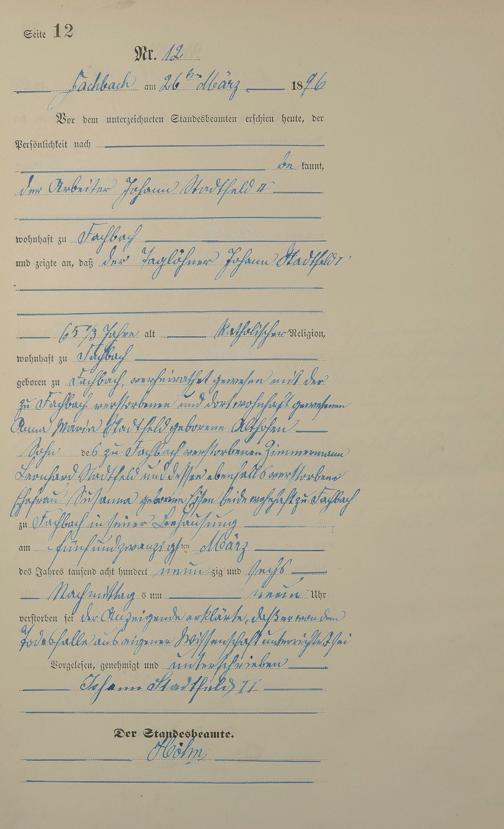 Seite 12
Nr. 12
Fachbach am 26ten März 1896
Vor dem unterzeichneten Standesbeamten erschien heute, der
Persönlichkeit nach
be kannt,
der Arbeiter Johann Stadtfeld II
wohnhaft zu Fachbach
und zeigte an, daß der Taglöhner Johann Stadtfeld I
65 Jahre alt Katholischer Religion,
wohnhaft zu Fachbach
geboren zu Fachbach, verheirathet gewesen mit der
zu Fachbach verstorbenen und dort wohnhaft gewesenen
Anna Maria Stadtfeld geborene
Sohn des zu Fachbach verstorbenen Zimmermann
Leonhard Stadtfeld und dessen ebenfalls verstorbene
Ehefrau Susanna geborene beide wohnhaft zu Fachbach
zu Fachbach in seiner Behausung
am fünfundzwanzigsten März
des Jahres tausend acht hundert neun zig und sechs
Nachmittags um neun Uhr
verstorben sei der Anzeigende erklärte, daß er von dem
Todesfalle aus eigener Wissenschaft unterrichtet sei
Vorgelesen, genehmigt und unterschrieben
Johann Stadtfeld II
Der Standesbeamte.